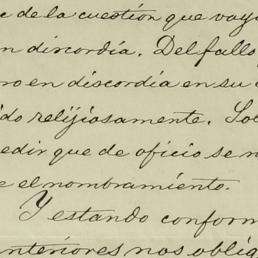 e de la cuestión que vay
n discordia. Del fallo
ro en discordia en su
ido relijiosamente. So
edir que de oficio se n
e el nombramiento.
Y estando conform
anteriores nos oblig